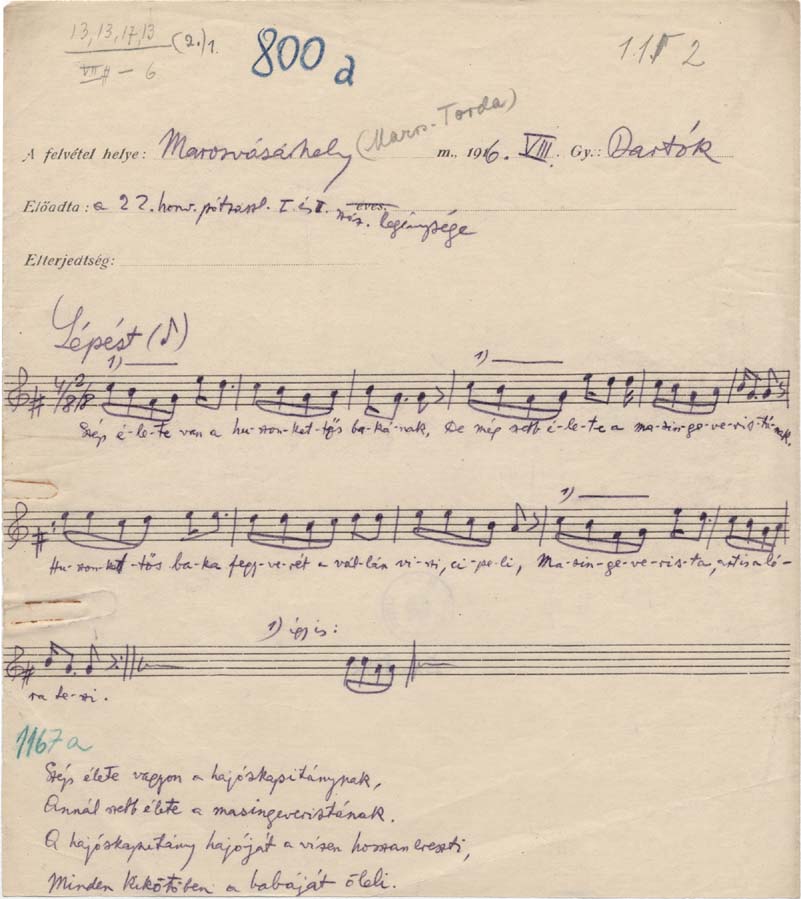 13, 13, 17, 13 (2.) 1.
VII # — 6
800 a
112
A felvétel helye: Marosvásárhely (Maros-Torda) m., 1916. VIII. Gy.: Bartók
Előadta: a 22. honv. pótzászl. I és II. éves. szás. legénysége
Elterjedtség:
Lépést (♪)
1) 1)
4/8 2/8
Szép é-le-te van a hu-szon-ket-tős ba-ká-nak, De még szebb é-le-te a ma-sin-ge-ve-ris-tá-nak.
1)
Hu-szon-ket-tős ba-ka fegy-ve-rét a vál-lán vi-szi, ci-pe-li, Ma-sin-ge-ve-ris-ta, aztis a ló-
1) így is:
ra te-szi.
1167a
Szép élete vagyon a hajóskapitánynak,
Annál szebb élete a masingeveristának.
A hajóskapitány hajóját a vízen hosszan ereszti,
Minden kikötőben a babáját öleli.